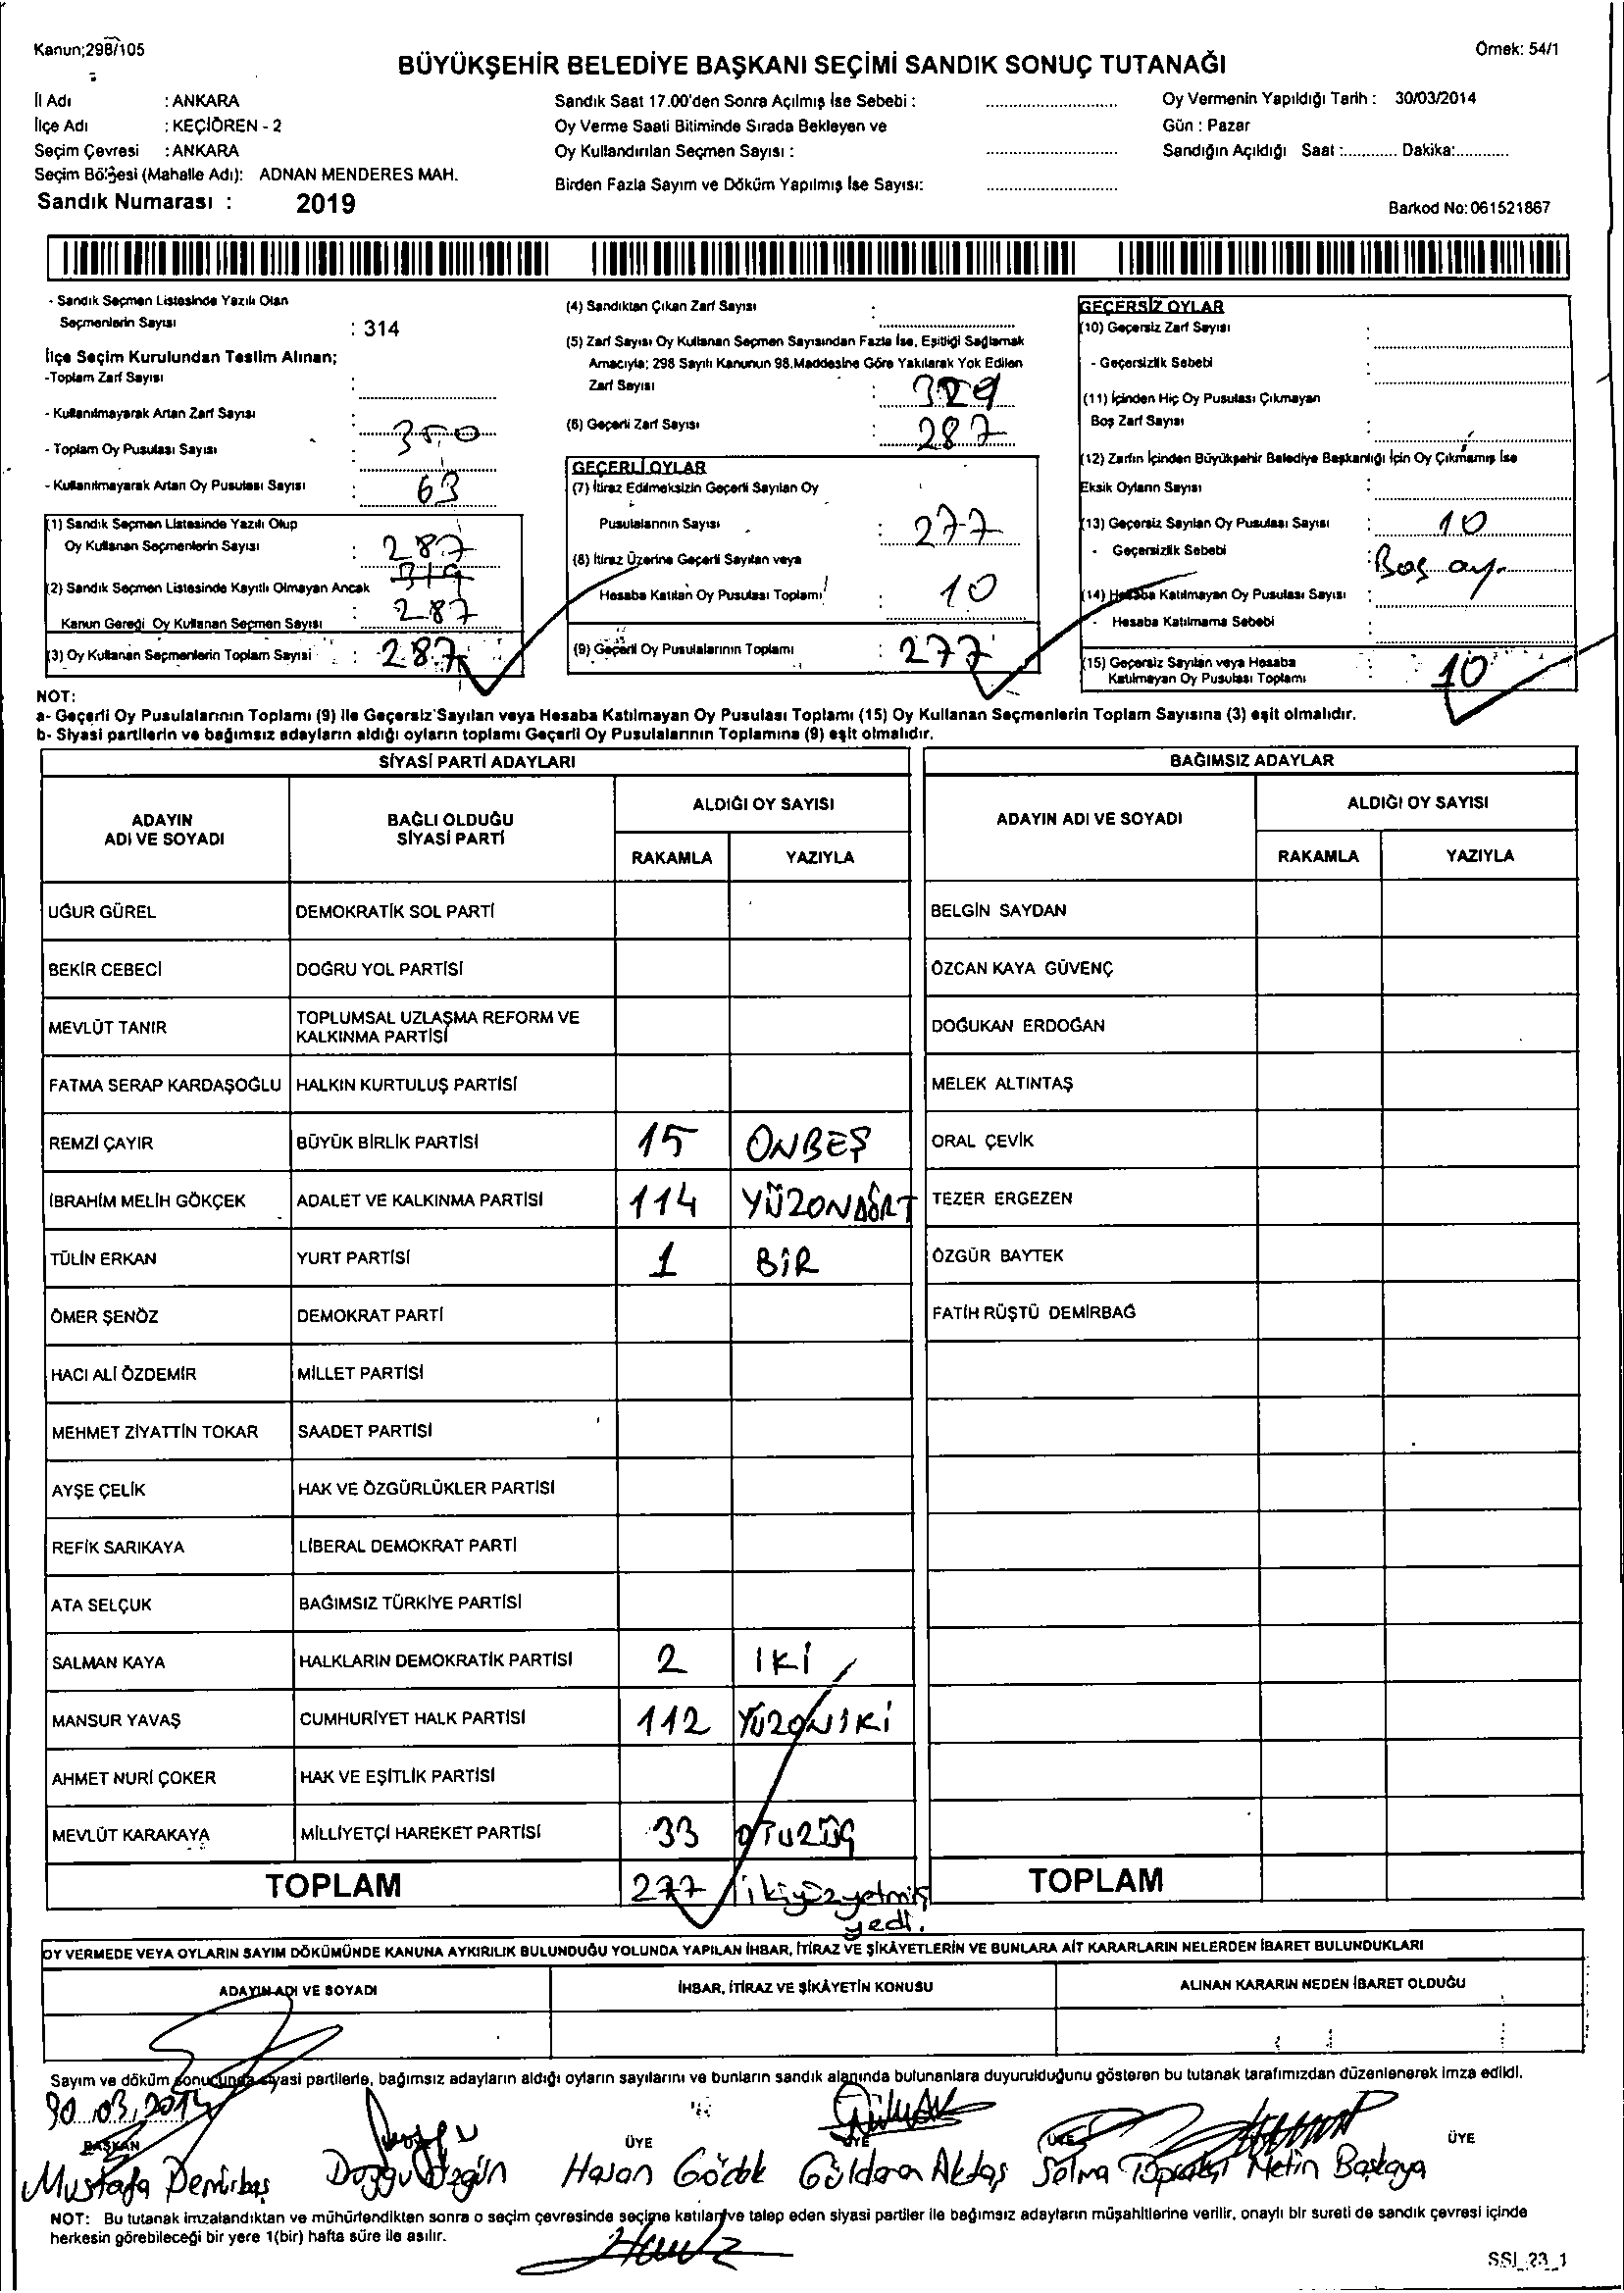 Kanun;298/105
Örnek: 54/1
BÜYÜKŞEHİR BELEDİYE BAŞKANI SEÇİMİ SANDIK SONUÇ TUTANAĞI
İl Adı : ANKARA
İlçe Adı : KEÇİÖREN - 2
Seçim Çevresi : ANKARA
Seçim Bölgesi (Mahalle Adı): ADNAN MENDERES MAH.
Sandık Numarası : 2019
Sandık Saat 17.00'den Sonra Açılmış İse Sebebi :
Oy Verme Saati Bitiminde Sırada Bekleyen ve
Oy Kullandırılan Seçmen Sayısı :
Birden Fazla Sayım ve Döküm Yapılmış İse Sayısı:
Oy Vermenin Yapıldığı Tarih : 30/03/2014
Gün : Pazar
Sandığın Açıldığı Saat :............ Dakika:............
Barkod No: 061521867
- Sandık Seçmen Listesinde Yazılı Olan
Seçmenlerin Sayısı : 314
İlçe Seçim Kurulundan Teslim Alınan;
-Toplam Zarf Sayısı :
- Kullanılmayarak Artan Zarf Sayısı :
- Toplam Oy Pusulası Sayısı : 350
- Kullanılmayarak Artan Oy Pusulası Sayısı : 63
(1) Sandık Seçmen Listesinde Yazılı Olup
Oy Kullanan Seçmenlerin Sayısı : 287
(2) Sandık Seçmen Listesinde Kayıtlı Olmayan Ancak
Kanun Gereği Oy Kullanan Seçmen Sayısı : 287
(3) Oy Kullanan Seçmenlerin Toplam Sayısı : 287
(4) Sandıktan Çıkan Zarf Sayısı :
(5) Zarf Sayısı Oy Kullanan Seçmen Sayısından Fazla İse, Eşitliği Sağlamak
Amacıyla; 298 Sayılı Kanunun 98.Maddesine Göre Yakılarak Yok Edilen
Zarf Sayısı :
(6) Geçerli Zarf Sayısı : 287
GEÇERLİ OYLAR
(7) İtiraz Edilmeksizin Geçerli Sayılan Oy
Pusulalarının Sayısı : 277
(8) İtiraz Üzerine Geçerli Sayılan veya
Hesaba Katılan Oy Pusulası Toplamı : 10
(9) Geçerli Oy Pusulalarının Toplamı : 277
GEÇERSİZ OYLAR
(10) Geçersiz Zarf Sayısı :
- Geçersizlik Sebebi :
(11) İçinden Hiç Oy Pusulası Çıkmayan
Boş Zarf Sayısı :
(12) Zarfın İçinden Büyükşehir Belediye Başkanlığı İçin Oy Çıkmamış İse
Eksik Oyların Sayısı :
(13) Geçersiz Sayılan Oy Pusulası Sayısı : 10
- Geçersizlik Sebebi : Boş oy.
(14) Hesaba Katılmayan Oy Pusulası Sayısı :
- Hesaba Katılmama Sebebi :
(15) Geçersiz Sayılan veya Hesaba
Katılmayan Oy Pusulası Toplamı : 10
NOT:
a- Geçerli Oy Pusulalarının Toplamı (9) ile Geçersiz Sayılan veya Hesaba Katılmayan Oy Pusulası Toplamı (15) Oy Kullanan Seçmenlerin Toplam Sayısına (3) eşit olmalıdır.
b- Siyasi partilerin ve bağımsız adayların aldığı oyların toplamı Geçerli Oy Pusulalarının Toplamına (9) eşit olmalıdır.
SİYASİ PARTİ ADAYLARI
ADAYIN
ADI VE SOYADI
BAĞLI OLDUĞU
SİYASİ PARTİ
ALDIĞI OY SAYISI
RAKAMLA YAZIYLA
UĞUR GÜREL DEMOKRATİK SOL PARTİ
BEKİR CEBECİ DOĞRU YOL PARTİSİ
MEVLÜT TANIR TOPLUMSAL UZLAŞMA REFORM VE
KALKINMA PARTİSİ
FATMA SERAP KARDAŞOĞLU HALKIN KURTULUŞ PARTİSİ
REMZİ ÇAYIR BÜYÜK BİRLİK PARTİSİ 15 ONBEŞ
İBRAHİM MELİH GÖKÇEK ADALET VE KALKINMA PARTİSİ 114 YÜZONDÖRT
TÜLİN ERKAN YURT PARTİSİ 1 BİR
ÖMER ŞENÖZ DEMOKRAT PARTİ
HACI ALİ ÖZDEMİR MİLLET PARTİSİ
MEHMET ZİYATTİN TOKAR SAADET PARTİSİ
AYŞE ÇELİK HAK VE ÖZGÜRLÜKLER PARTİSİ
REFİK SARIKAYA LİBERAL DEMOKRAT PARTİ
ATA SELÇUK BAĞIMSIZ TÜRKİYE PARTİSİ
SALMAN KAYA HALKLARIN DEMOKRATİK PARTİSİ 2 İKİ
MANSUR YAVAŞ CUMHURİYET HALK PARTİSİ 112 YÜZONİKİ
AHMET NURİ ÇOKER HAK VE EŞİTLİK PARTİSİ
MEVLÜT KARAKAYA MİLLİYETÇİ HAREKET PARTİSİ 33 OTUZÜÇ
TOPLAM 277 ikiyüzyetmiş
yedi.
BAĞIMSIZ ADAYLAR
ADAYIN ADI VE SOYADI
ALDIĞI OY SAYISI
RAKAMLA YAZIYLA
BELGİN SAYDAN
ÖZCAN KAYA GÜVENÇ
DOĞUKAN ERDOĞAN
MELEK ALTINTAŞ
ORAL ÇEVİK
TEZER ERGEZEN
ÖZGÜR BAYTEK
FATİH RÜŞTÜ DEMİRBAĞ
TOPLAM
OY VERMEDE VEYA OYLARIN SAYIM DÖKÜMÜNDE KANUNA AYKIRILIK BULUNDUĞU YOLUNDA YAPILAN İHBAR, İTİRAZ VE ŞİKÂYETLERİN VE BUNLARA AİT KARARLARIN NELERDEN İBARET BULUNDUKLARI
ADAYIN ADI VE SOYADI
İHBAR, İTİRAZ VE ŞİKÂYETİN KONUSU
ALINAN KARARIN NEDEN İBARET OLDUĞU
Sayım ve döküm sonucunda siyasi partilerle, bağımsız adayların aldığı oyların sayılarını ve bunların sandık alanında bulunanlara duyurulduğunu gösteren bu tutanak tarafımızdan düzenlenerek imza edildi.
30.03.2014
BAŞKAN ÜYE ÜYE ÜYE ÜYE
Mustafa Demirbaş Duygu Özgün Hasan Gülderen Aktaş Selma Toprakçı Metin Başkaya
NOT: Bu tutanak imzalandıktan ve mühürlendikten sonra o seçim çevresinde seçime katılan ve talep eden siyasi partiler ile bağımsız adayların müşahitlerine verilir, onaylı bir sureti de sandık çevresi içinde
herkesin görebileceği bir yere 1(bir) hafta süre ile asılır.
SSI_23_1